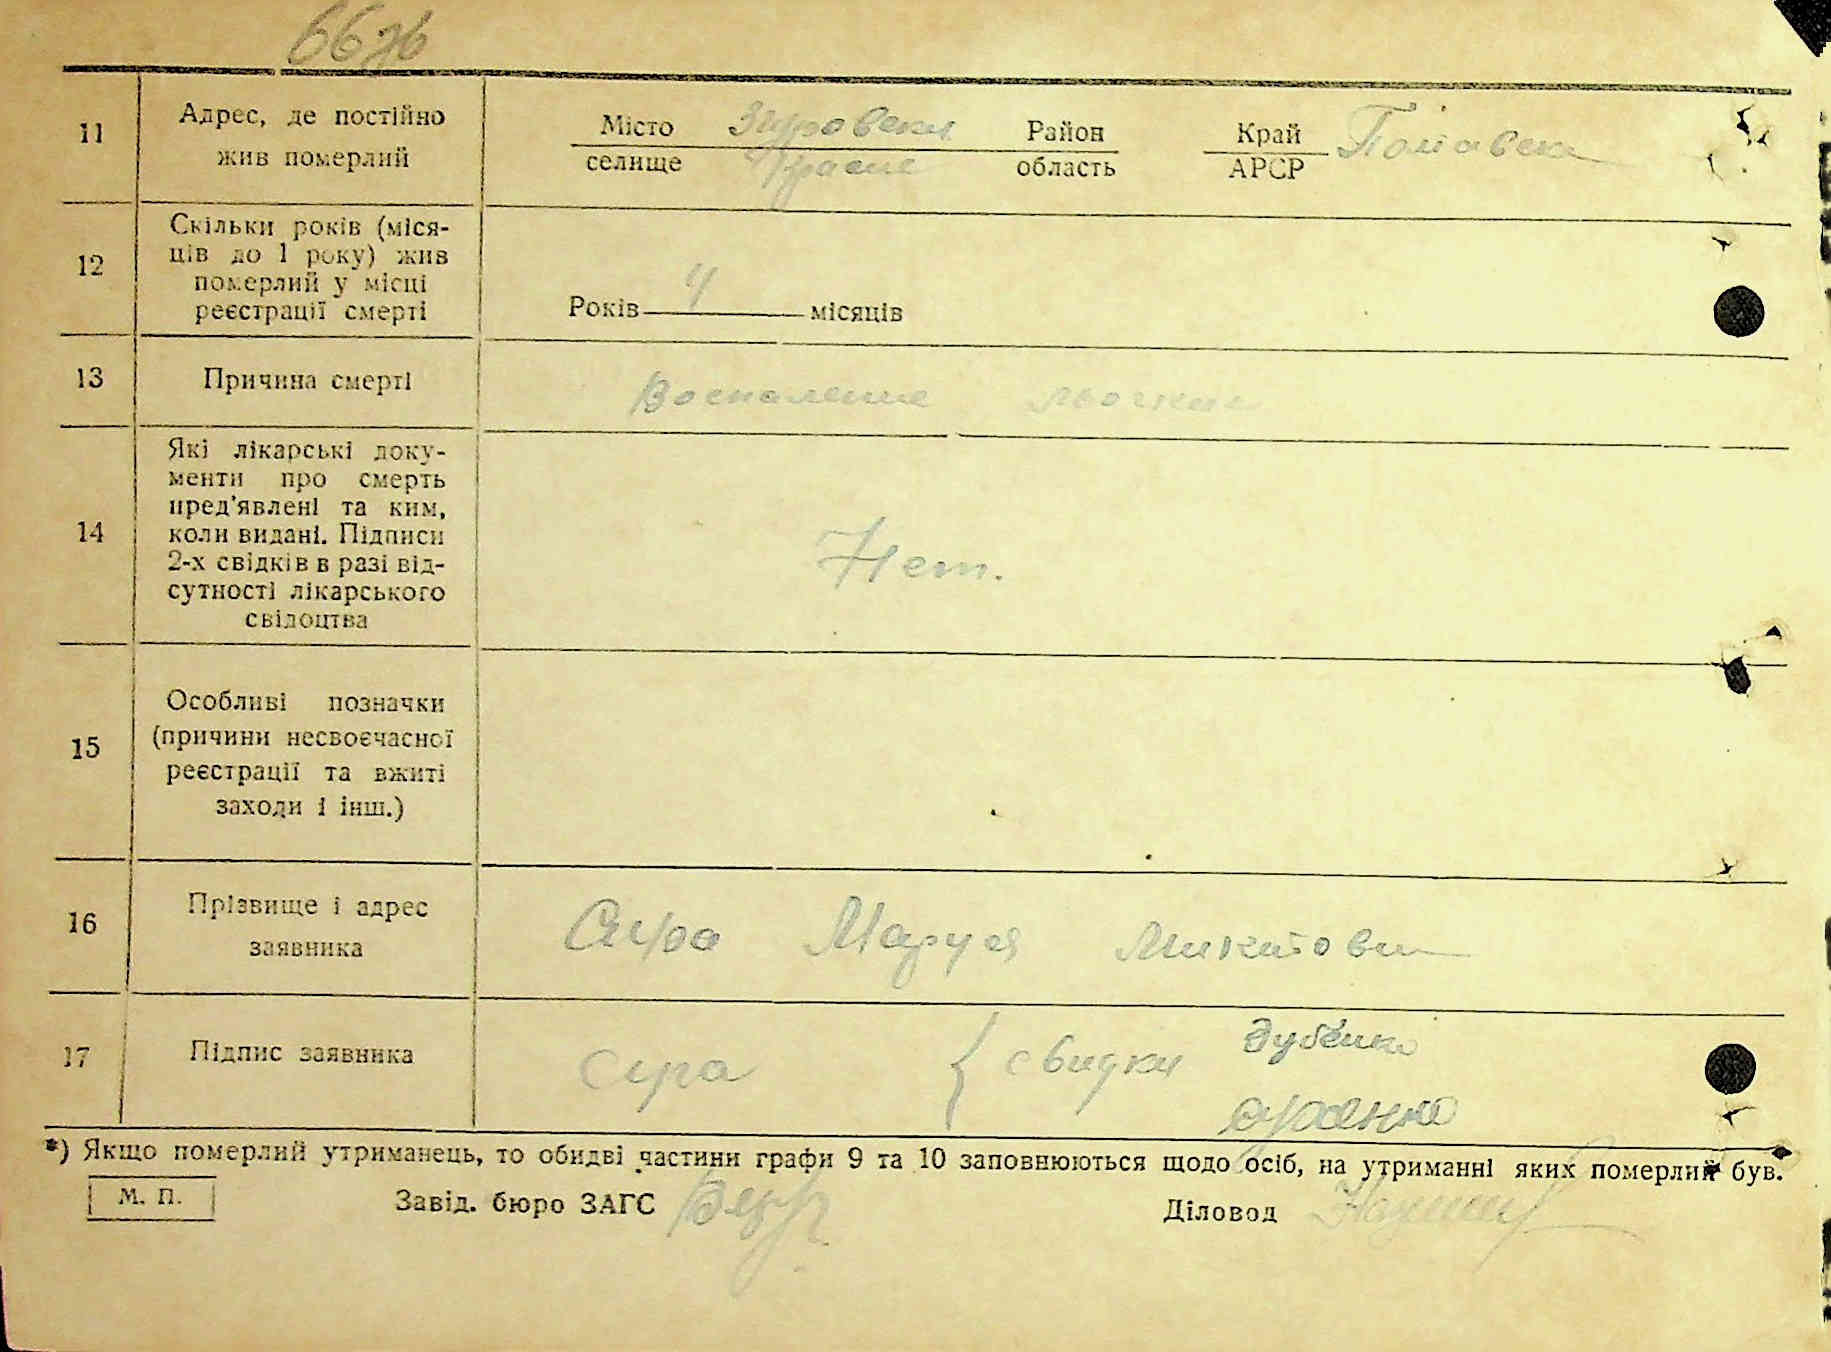 66зв
11
Адрес, де постійно
жив померлий
Місто Згуровский Район Край Полтавска
селище Красне область АРСР
12
Скільки років (міся-
ців до 1 року) жив
померлий у місці
реєстрації смерті
Років 4 місяців
13
Причина смерті
Воспаление льогких
14
Які лікарські доку-
менти про смерть
пред'явлені та ким,
коли видані. Підписи
2-х свідків в разі від-
сутності лікарського
свідоцтва
Нет.
15
Особливі позначки
(причини несвоєчасної
реєстрації та вжиті
заходи і інш.)
16
Прізвище і адрес
заявника
Сира Маруся Микитовн
17
Підпис заявника
Сира { свидки Дубенко
*) Якщо померлий утриманець, то обидві частини графи 9 та 10 заповнюються щодо осіб, на утриманні яких померлий був.
М. П.
Завід. бюро ЗАГС
Діловод